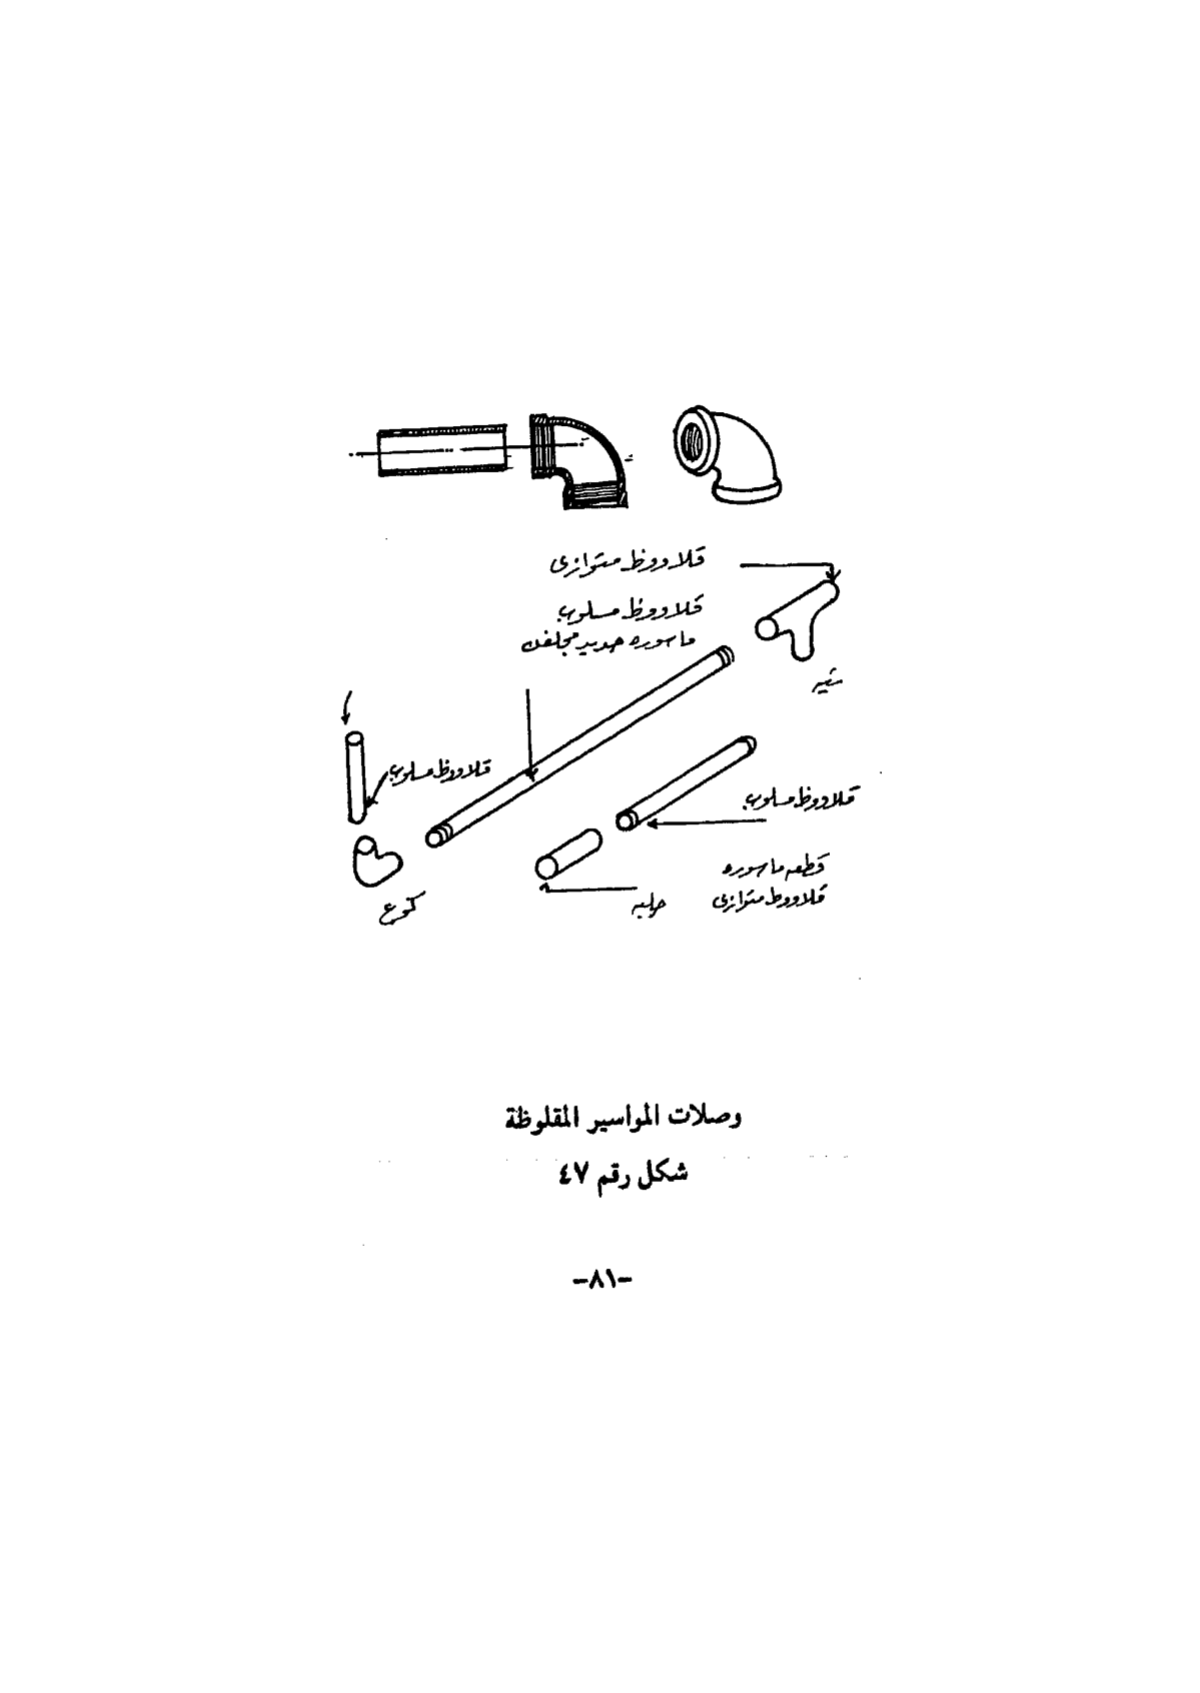 قلاووظ متوازى
قلاووظ مسلوب
ماسوره حديد مجلفن
تيه
قلاووظ مسلوب
قلاووظ مسلوب
قطعه ماسوره
قلاووظ متوازى
جلبه
كوع
وصلات المواسير المقلوظة
شكل رقم ٤٧
-٨١-